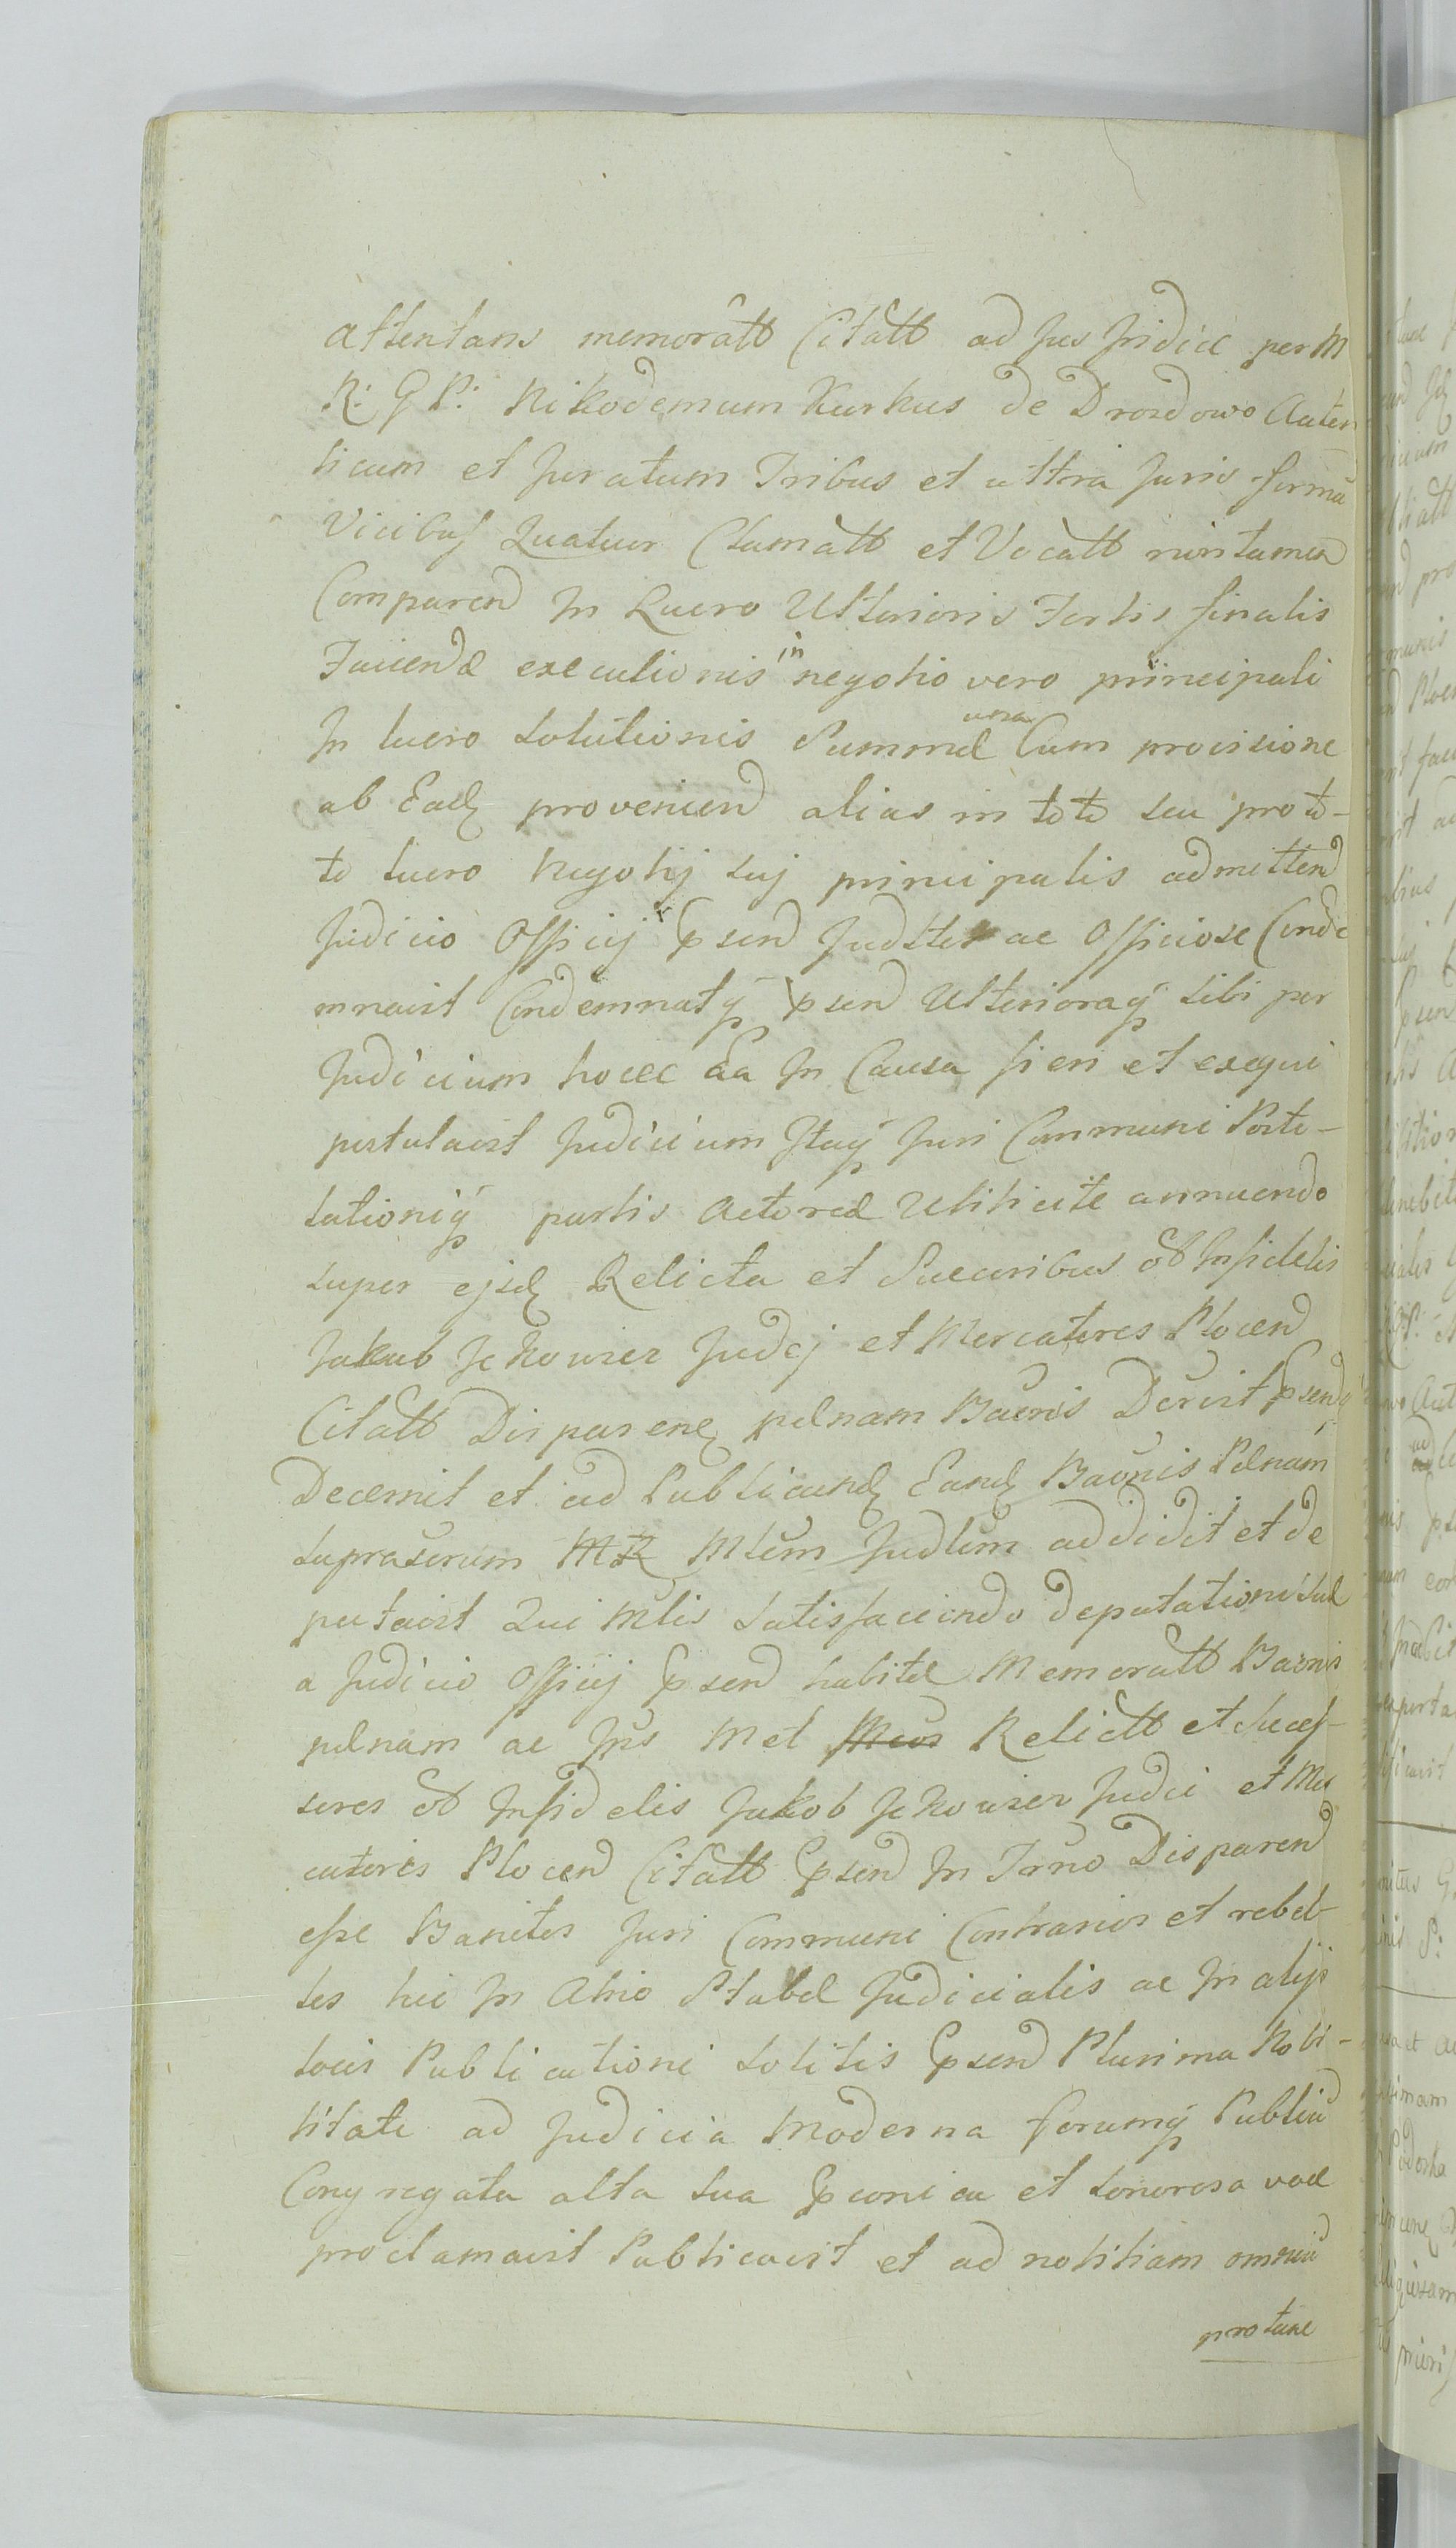 attentans memoratt Citatt ad Jus Jridice per M
R: G P: Nikodemum Kurkus de Drozdowo Auten
ticum et Juratum Tribus et ultra Juris formā
Vicibus Quatuor Clamatt et Vocatt nontamen
Comparen In Lucro Ulterioris Fortis finalis
Faciendæ executionis in negotio vero principali
In lucro Solutionis Summæ una Cum provisione
ab Eadq provenien alias in toto seu pro to-
to lucro Negotij suj principalis admitten
Judicio Officij psen Judster ac Officiose Conde
mnavit Condemnatq psen Ulterioraq sibi per
Judicium hocce Ea In Causa fieri et exequi
postulavit Judicium Itaq Juri Communi Posto-
lationiq partis Actoreæ Utiticite annuendo
super ejsdq Relicta et Succoribus ob Infidelis
Jakub Jckowicz Judej et Mercatores Plocen
Citatt Disparenq pænam Banis Decrvit psen
Decernit et ad Publicandq Eandq Banis Pænam
suprascrum MR Mlem Judlem addidit et de
putavit Qui Mlis Satisfaciendo deputationi suæ
a Judicio Officij psen habitæ Memoratt Banis
pænam ac Jps Met Meos Relictt et succes-
sores ob Infidelis Jakob Jckowicz Judei et Mer
catoris Plocen Citatt psen In Trno Disparen
esse Banitos Juri Communi Contrarios et rebel-
les hic In Atrio Stabæ Judicialis ac In alijs
locis Publicationi solitis psen Plurima Nobi-
litate ad Judicia Moderna forumq Publicū
Congregata alta sua pconica et sonorosa voce
proclamavit Publicavit et ad notitiam omniū
protunc